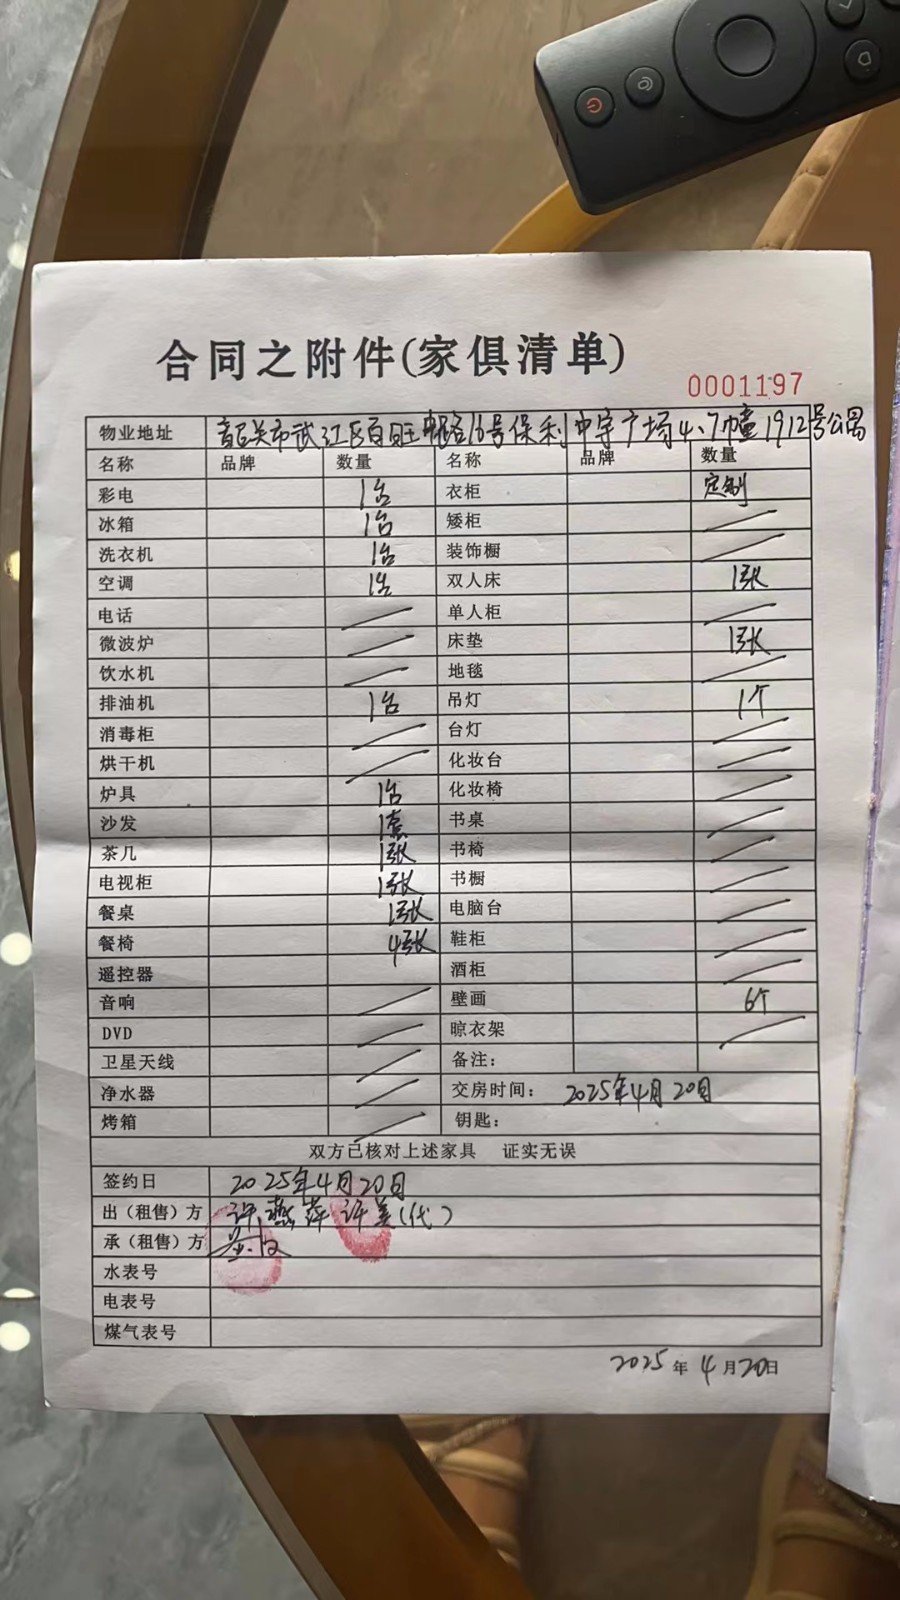 合同之附件(家俱清单)
0001197
物业地址 韶关市武江区百旺中路16号保利中宇广场4、7幢1912号公寓
名称 品牌 数量 名称 品牌 数量
彩电 1台 衣柜 定制
冰箱 1台 矮柜
洗衣机 1台 装饰橱
空调 1台 双人床 1张
电话 单人柜
微波炉 床垫 1张
饮水机 地毯
排油机 1台 吊灯 1个
消毒柜 台灯
烘干机 化妆台
炉具 1台 化妆椅
沙发 1套 书桌
茶几 1张 书椅
电视柜 1张 书橱
餐桌 1张 电脑台
餐椅 4张 鞋柜
遥控器 酒柜
音响 壁画 6个
DVD 晾衣架
卫星天线 备注:
净水器 交房时间: 2025年4月20日
烤箱 钥匙:
双方已核对上述家具 证实无误
签约日 2025年4月20日
出(租售)方 许燕萍 许美(代)
承(租售)方
水表号
电表号
煤气表号
2025年4月20日